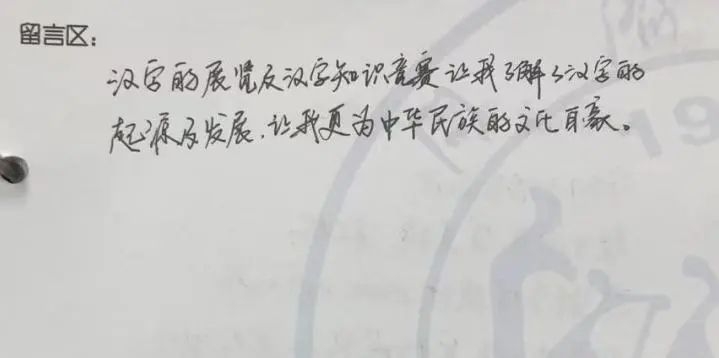 留言区：
汉字的展览及汉字知识竞赛让我了解了汉字的
起源及发展，让我更为中华民族的文化自豪。
19